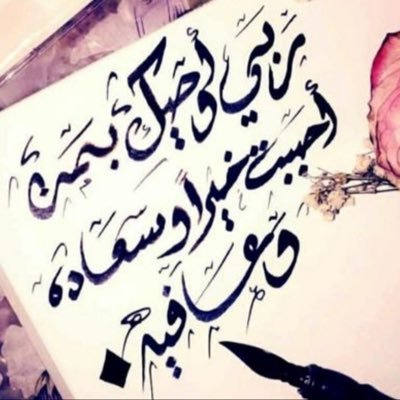 ربي أوصيك بمن
أحببت خيراً وسعاده
وعافيه